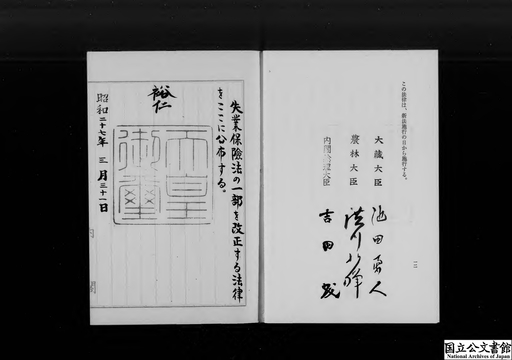 この法律は、新法施行の日から施行する。
大蔵大臣 池田勇人
農林大臣
内閣総理大臣 吉田茂
一二
失業保險法の一部を改正する法律
をここに公布する。
裕仁
天皇
御璽
昭和二十七年三月三十一日
内閣
国立公文書館
National Archives of Japan